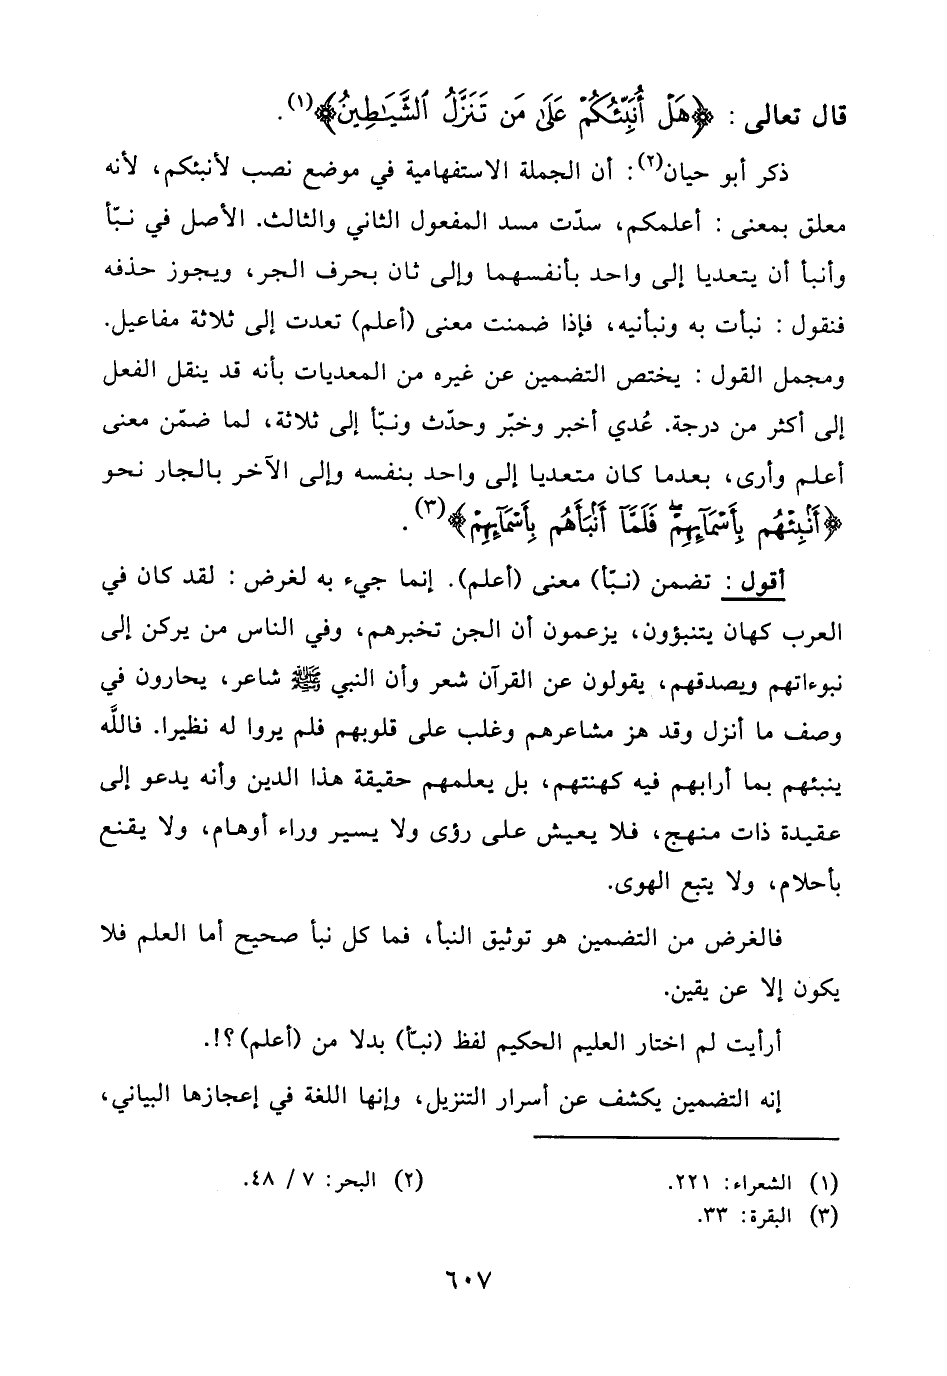 قال تعالى : ﴿هَلْ أُنَبِّئُكُمْ عَلَىٰ مَن تَنَزَّلُ ٱلشَّيَـٰطِينُ﴾(١).
ذكر أبو حيان(٢): أن الجملة الاستفهامية في موضع نصب لأنبئكم، لأنه
معلق بمعنى : أعلمكم، سدّت مسد المفعول الثاني والثالث. الأصل في نبّأ
وأنبأ أن يتعديا إلى واحد بأنفسهما وإلى ثان بحرف الجر، ويجوز حذفه
فنقول : نبأت به ونبأنيه، فإذا ضمنت معنى (أعلم) تعدت إلى ثلاثة مفاعيل.
ومجمل القول : يختص التضمين عن غيره من المعديات بأنه قد ينقل الفعل
إلى أكثر من درجة. عُدي أخبر وخبّر وحدّث ونبّأ إلى ثلاثة، لما ضمّن معنى
أعلم وأرى، بعدما كان متعديا إلى واحد بنفسه وإلى الآخر بالجار نحو
﴿أَنۢبِئْهُم بِأَسْمَآئِهِمْ ۖ فَلَمَّآ أَنۢبَأَهُم بِأَسْمَآئِهِمْ﴾(٣).
أقول : تضمن (نبّأ) معنى (أعلم). إنما جيء به لغرض : لقد كان في
العرب كهان يتنبؤون، يزعمون أن الجن تخبرهم، وفي الناس من يركن إلى
نبوءاتهم ويصدقهم، يقولون عن القرآن شعر وأن النبي ﷺ شاعر، يحارون في
وصف ما أنزل وقد هز مشاعرهم وغلب على قلوبهم فلم يروا له نظيرا. فاللَّه
ينبئهم بما أرابهم فيه كهنتهم، بل يعلمهم حقيقة هذا الدين وأنه يدعو إلى
عقيدة ذات منهج، فلا يعيش على رؤى ولا يسير وراء أوهام، ولا يقنع
بأحلام، ولا يتبع الهوى.
فالغرض من التضمين هو توثيق النبأ، فما كل نبأ صحيح أما العلم فلا
يكون إلا عن يقين.
أرأيت لم اختار العليم الحكيم لفظ (نبّأ) بدلا من (أعلم)؟!.
إنه التضمين يكشف عن أسرار التنزيل، وإنها اللغة في إعجازها البياني،
(١) الشعراء: ٢٢١. (٢) البحر: ٧ / ٤٨.
(٣) البقرة: ٣٣.
٦٠٧